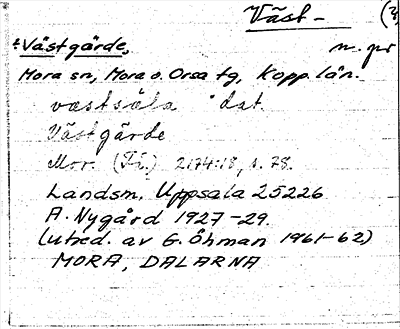 Väst-
Västgärde, n. pr
Mora sn, Mora o. Orsa tg, Kopp. län.
västsäla dat.
Västgärde
Mor. (Fi.) 2174:18, s. 78.
Landsm. Uppsala 25226
A. Nygård 1927-29.
(utred. av G. Öhman 1961-62)
MORA, DALARNA